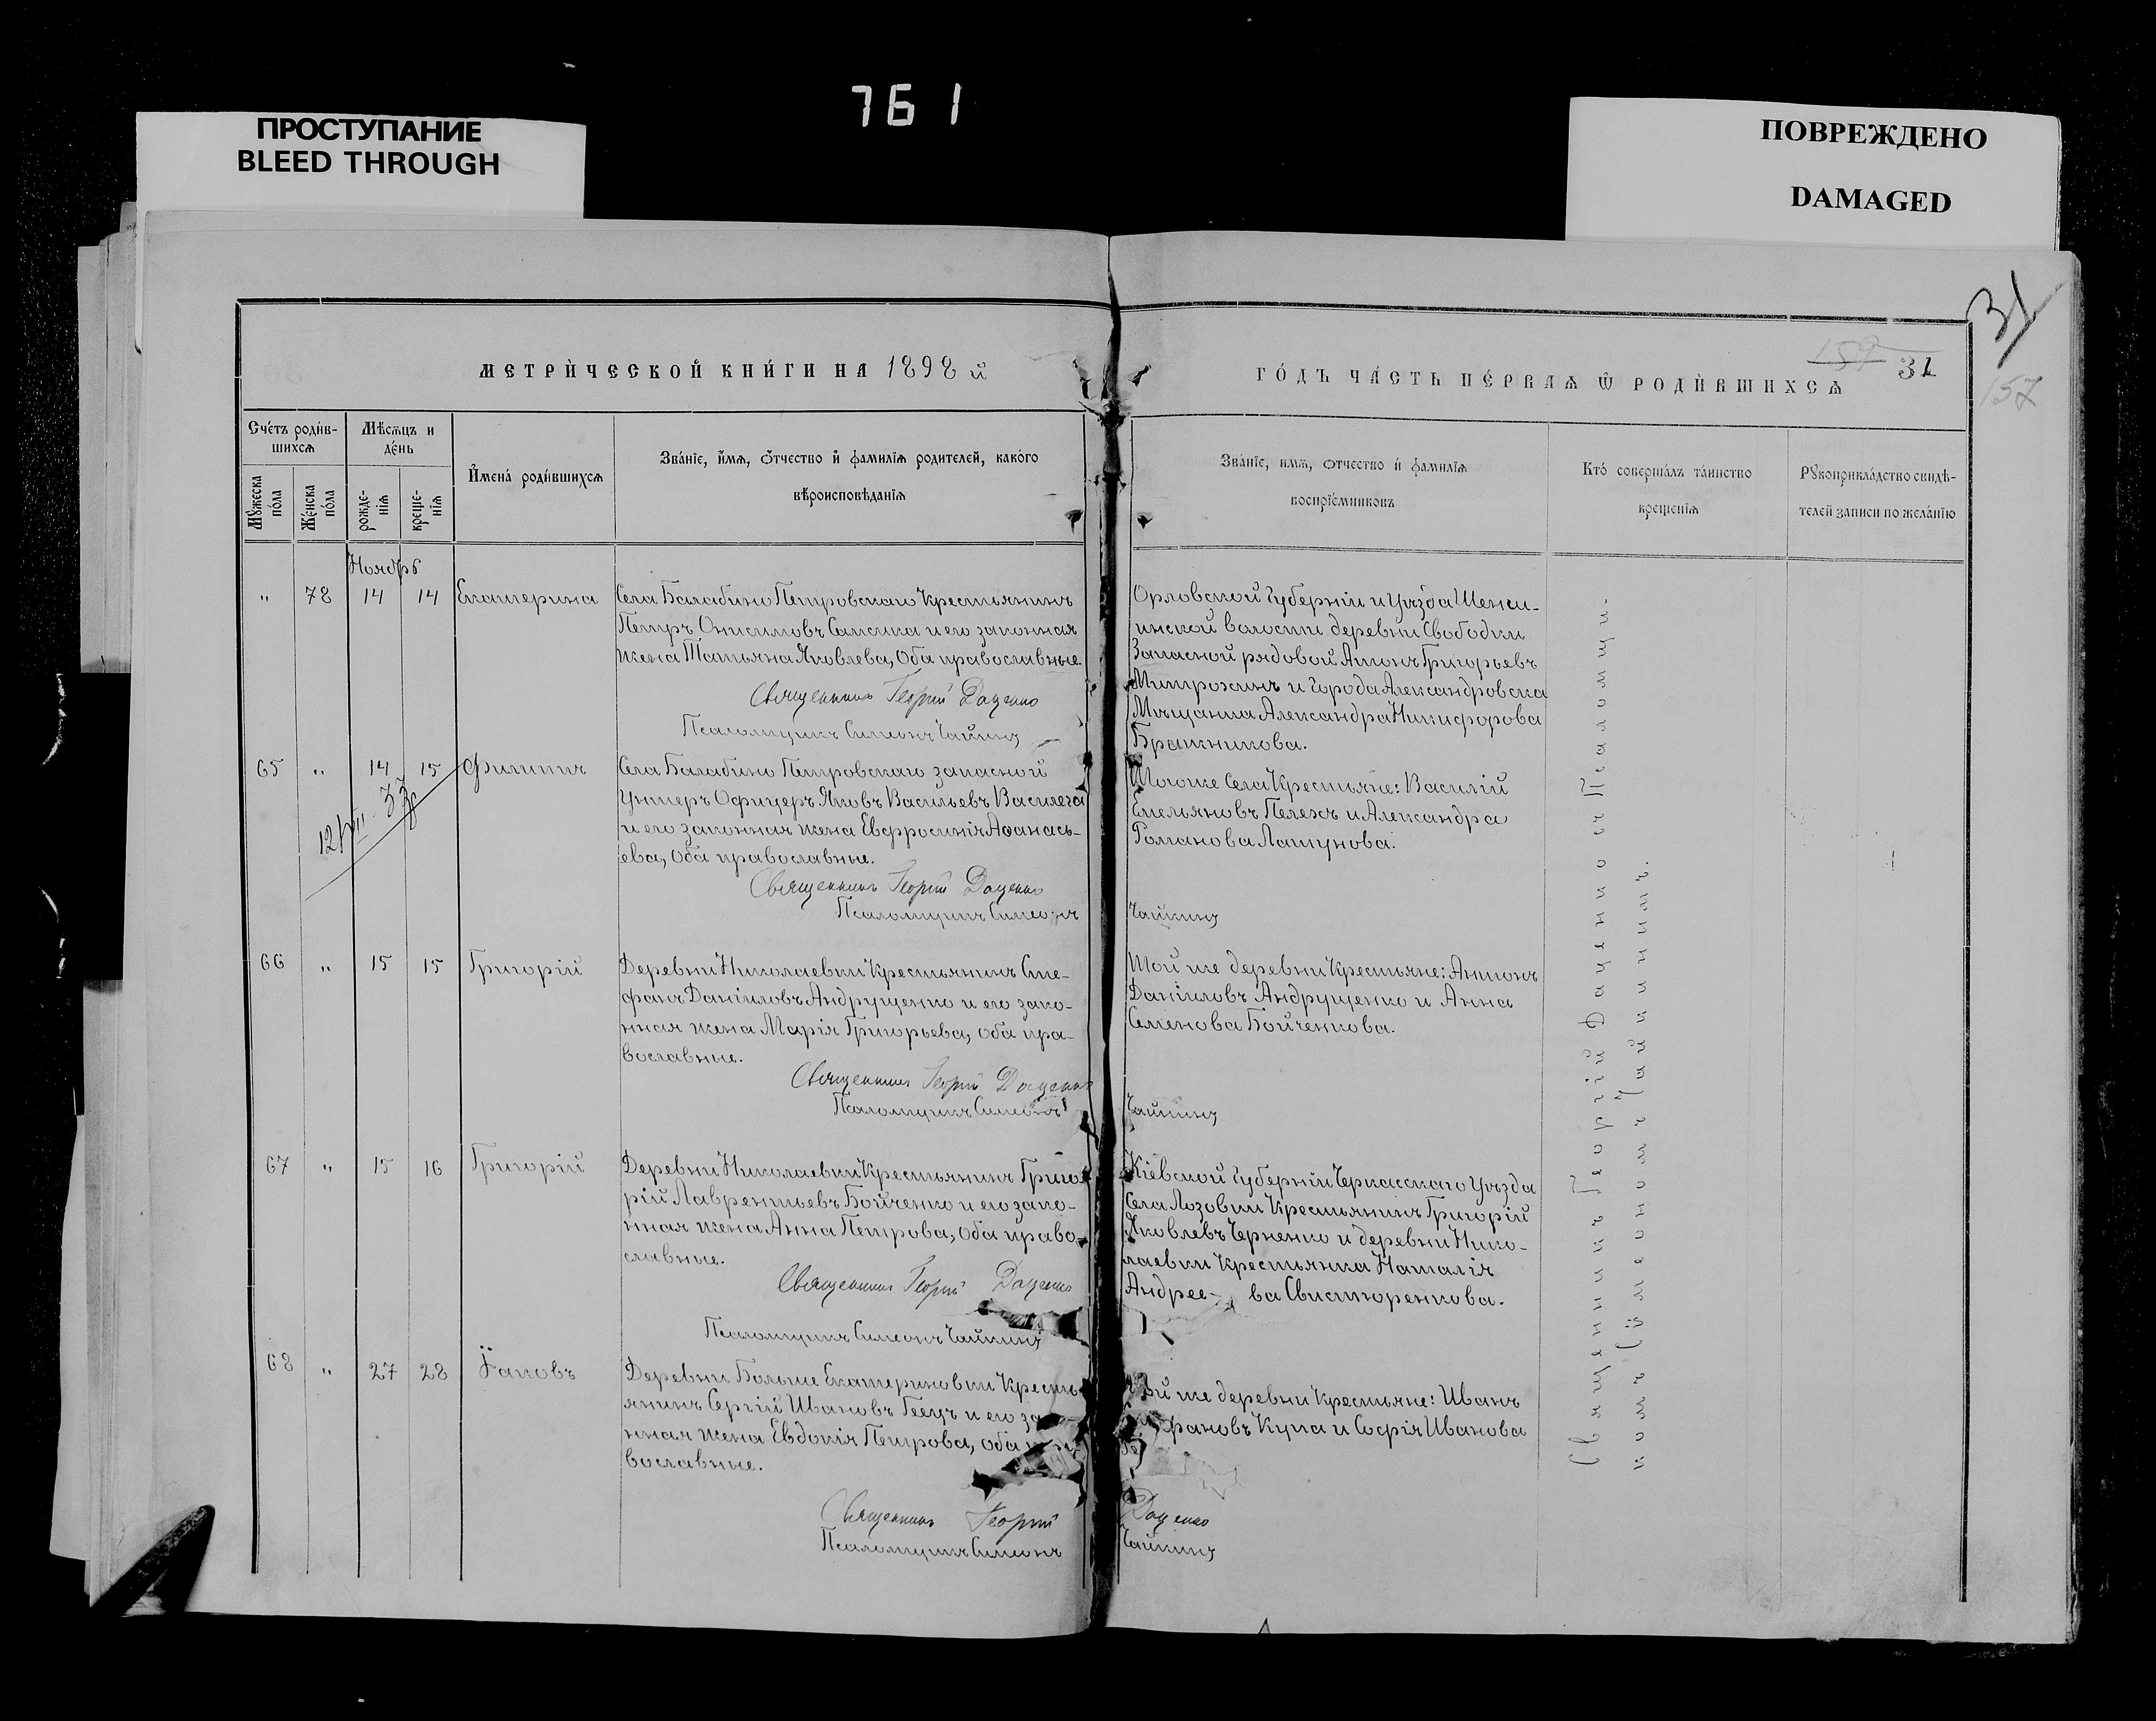 761
ПРОСТУПАНИЕ
BLEED THROUGH
ПОВРЕЖДЕНО
DAMAGED
МЕТРИ́ЧЕСКОЙ КНИ́ГИ НА 1898 й
ГО́ДЪ ЧА́СТЬ ПЕ́РВАѦ Ѿ РОДИ́ВШИХСѦ
159
31
31
157
Сче́тъ роди́в-
шихсѧ
Мѣ́сѧцъ и
де́нь
Мꙋ́жеска
по́ла
Же́нска
по́ла
рожде-
нїѧ
креще-
нїѧ
И҆мена̀ роди́вшихсѧ
Зва́нїе, и҆́мѧ, ѻ҆́тчество и҆ фамилїѧ родителей, како́го
вѣроисповѣ́данїѧ
Зва́нїе, имѧ, отчество и҆ фамилїѧ
воспрїе́мниковъ
Кто̀ соверша́лъ та́инство
креще́нїѧ
Рꙋкоприкла́дство свидѣ́-
телей записи по жела́нїю
Ноябрь
" 78 14 14 Екатерина
Села Балабино Петровскаго Крестьянинъ
Петръ Онисимовъ Самсика и его законная
жена Татьяна Яковлева, оба православные.
Священникъ Георгій Даценко
Псаломщикъ Симеонъ Чайкинъ
Орловской губерніи и уѣзда
инской волости деревни Свободки
Запасной рядовой Антонъ Григорьевъ
Митрохинъ и города Александровска
Мѣщанка Александра Никифорова
Бражникова.
65 " 14 15 Филиппъ
Села Балабино Петровскаго запасной
Унтеръ Офицеръ Яковъ Васильевъ Василега
и его законная жена Евфросинія Аѳанась-
ева, оба православные.
Священникъ Георгій Даценко
Псаломщикъ Симеонъ
Чайкинъ
Того же села Крестьяне: Василій
Емельяновъ Пелехъ и Александра
Романова Латунова.
66 " 15 15 Григорій
Деревни Николаевки Крестьянинъ Сте-
фанъ Даніиловъ Андрущенко и его зако-
нная жена Марія Григорьева, оба пра-
вославные.
Священникъ Георгій Даценко
Псаломщикъ Симеонъ
Чайкинъ
Той же деревни Крестьяне: Антонъ
Даніиловъ Андрущенко и Анна
Семенова Бойченкова.
67 " 15 16 Григорій
Деревни Николаевки Крестьянинъ Григо-
рій Лаврентьевъ Бойченко и его зако-
нная жена Анна Петрова, оба право-
славные.
Священникъ Георгій Даценко
Псаломщикъ Симеонъ Чайкинъ
Кіевской губерніи Черкасскаго уѣзда
Села Лозовки Крестьянинъ Григорій
Яковлевъ Черненко и деревни Нико-
лаевки Крестьянка Наталія
Андрее- ва Свистюренкова.
68 " 27 28 Іаковъ
Деревни Больше Екатериновки Кресть-
янинъ Сергій Ивановъ Геецъ и его
нная жена Евдокія Петрова, оба
вославные.
Священникъ Георгій Даценко
Псаломщикъ Симеонъ Чайкинъ
же деревни Крестьяне: Иванъ
фановъ Купа и Софія Иванова
Священникъ Георгій Даценко съ Псаломщи-
комъ Симеономъ Чайкинимъ.